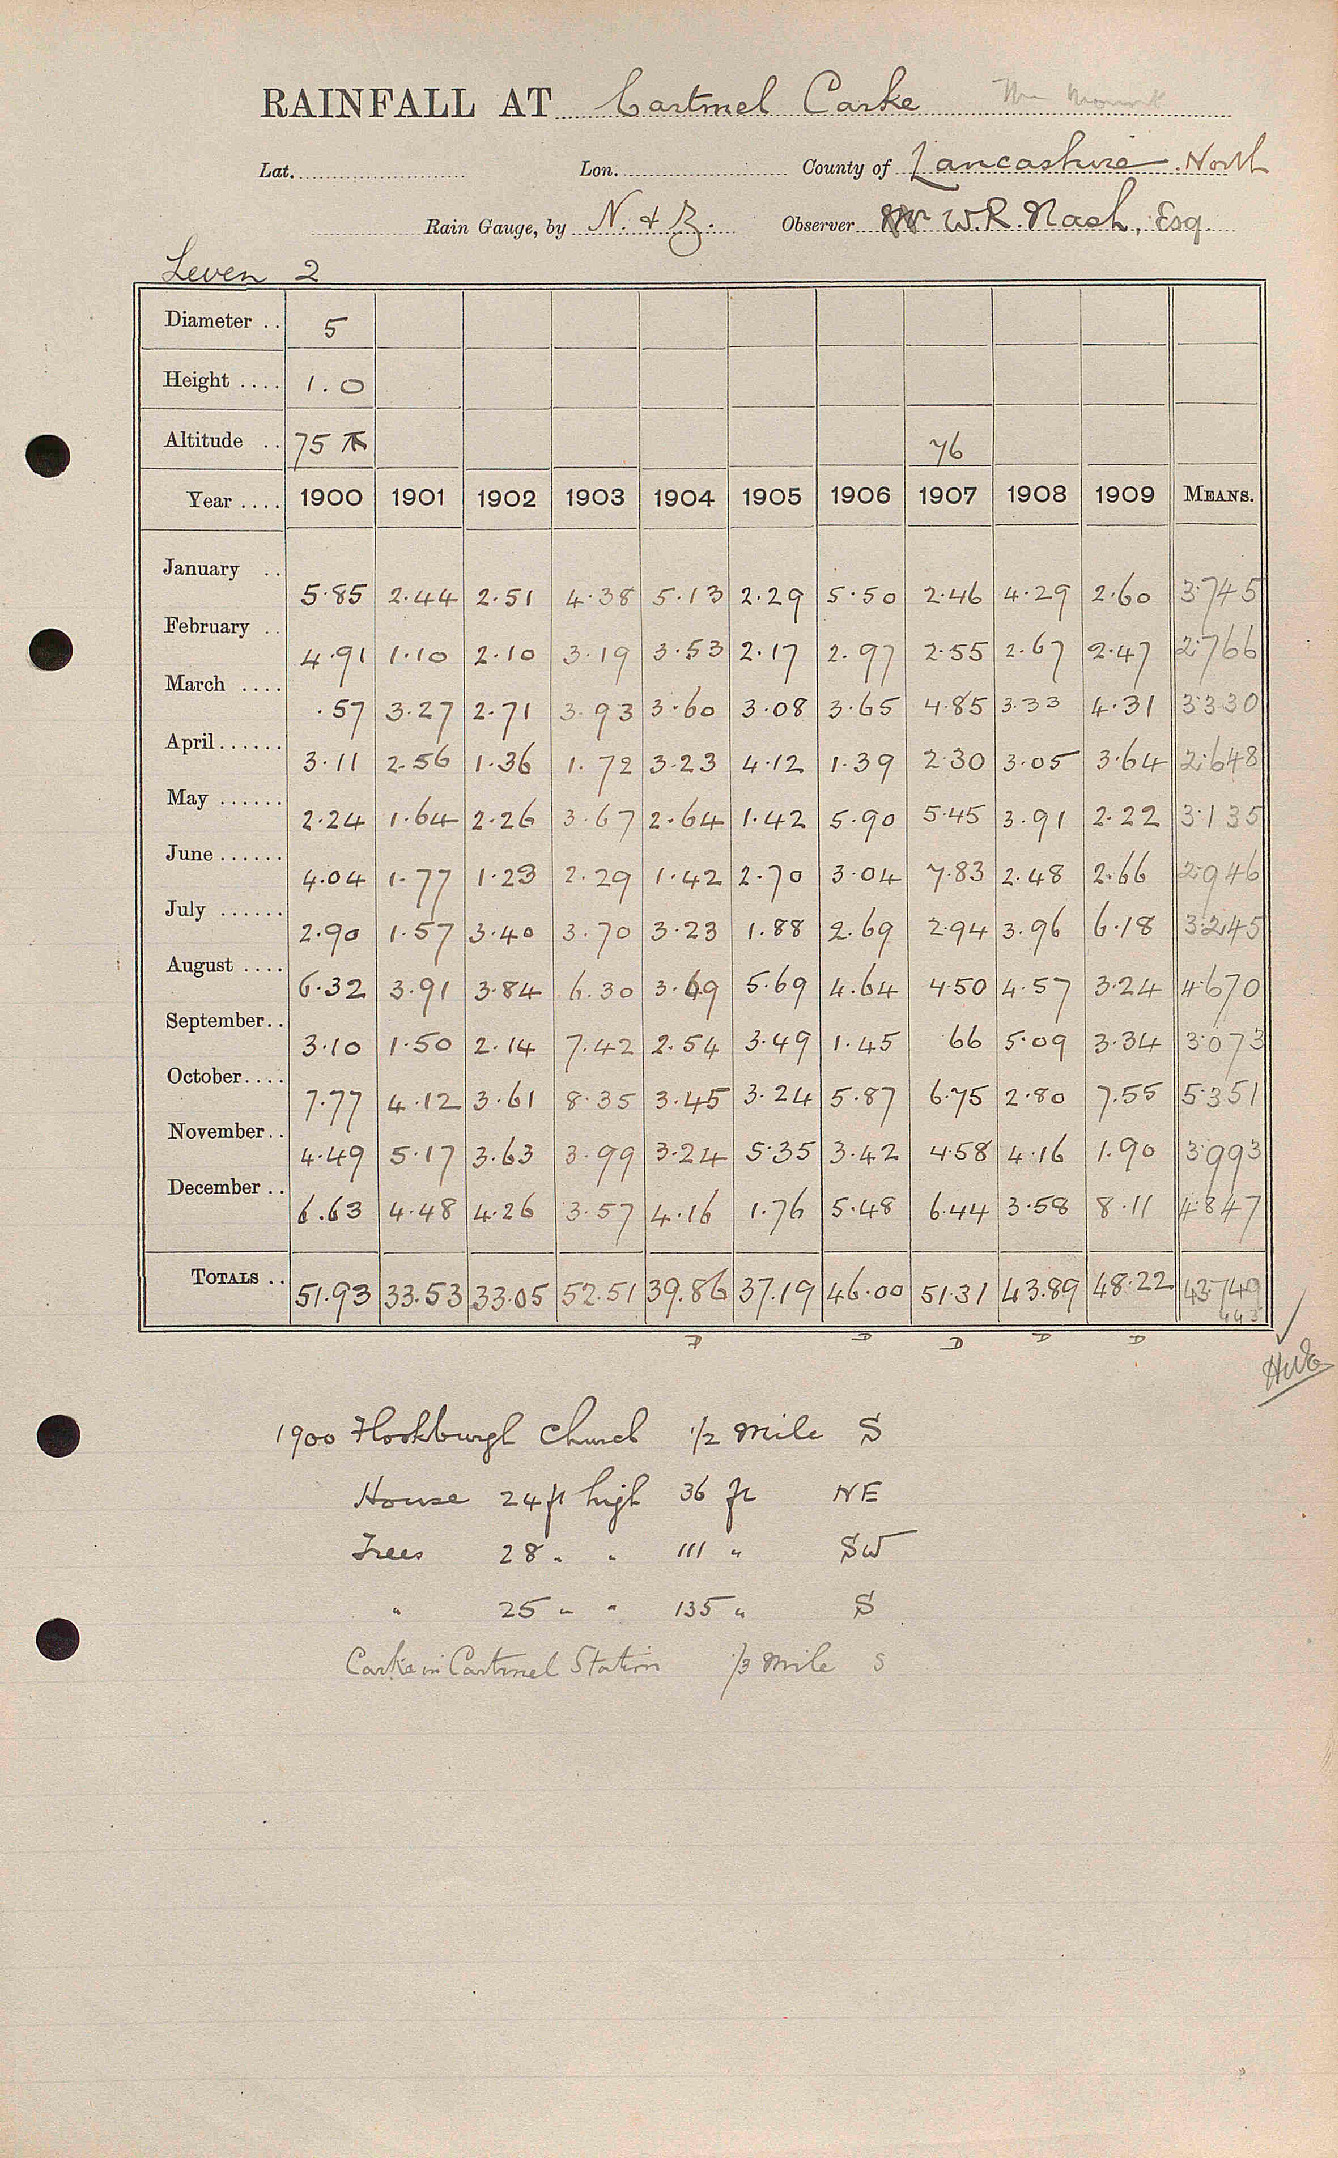 RAINFALL AT Cartmel Carke The Mount
Lat. Lon. County of Lancashire. North
Rain Gauge, by N. & Z. Observer W.R. Nash, Esq.
Leven 2
Diameter .. 5
Height .... 1.0
Altitude .. 75 76
Year .... 1900 1901 1902 1903 1904 1905 1906 1907 1908 1909 MEANS.
January .. 5.85 2.44 2.51 4.38 5.13 2.29 5.50 2.46 4.29 2.60 3.745
February .. 4.91 1.10 2.10 3.19 3.53 2.17 2.97 2.55 2.67 2.47 2.766
March .... .57 3.27 2.71 3.93 3.60 3.08 3.65 4.85 3.33 4.31 3.330
April ...... 3.11 2.56 1.36 1.72 3.23 4.12 1.39 2.30 3.05 3.64 2.648
May ...... 2.24 1.64 2.26 3.67 2.64 1.42 5.90 5.45 3.91 2.22 3.135
June ...... 4.04 1.77 1.23 2.29 1.42 2.70 3.04 7.83 2.48 2.66 2.946
July ...... 2.90 1.57 3.40 3.70 3.23 1.88 2.69 2.94 3.96 6.18 3.245
August .... 6.32 3.91 3.84 6.30 3.69 5.69 4.64 4.50 4.57 3.24 4.670
September.. 3.10 1.50 2.14 7.42 2.54 3.49 1.45 .66 5.09 3.34 3.073
October.... 7.77 4.12 3.61 8.35 3.45 3.24 5.87 6.75 2.80 7.55 5.351
November.. 4.49 5.17 3.63 3.99 3.24 5.35 3.42 4.58 4.16 1.90 3.993
December .. 6.63 4.48 4.26 3.57 4.16 1.76 5.48 6.44 3.58 8.11 4.847
TOTALS .. 51.93 33.53 33.05 52.51 39.86 37.19 46.00 51.31 43.89 48.22 43.749
443
D D D D D
1900 Flookburgh Church 1/2 Mile S
House 24 ft high 36 ft NE
Trees 28 " " 111 " SW
" 25 " " 135 " S
Carke in Cartmel Station 1/3 Mile S